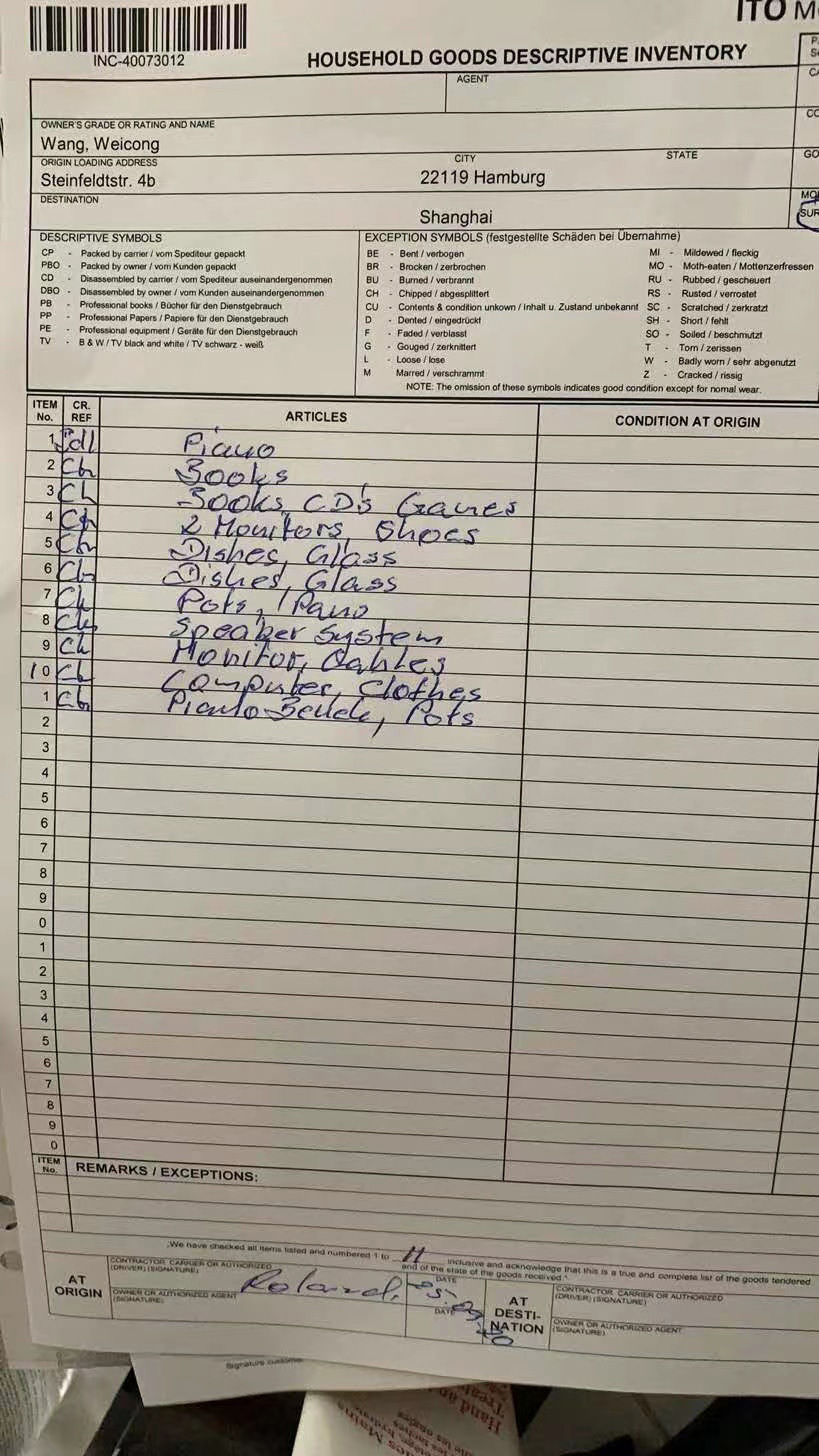 ITO M
INC-40073012
HOUSEHOLD GOODS DESCRIPTIVE INVENTORY
AGENT
OWNER'S GRADE OR RATING AND NAME
Wang, Weicong
ORIGIN LOADING ADDRESS CITY STATE GO
Steinfeldtstr. 4b 22119 Hamburg
DESTINATION MO
Shanghai SUR
DESCRIPTIVE SYMBOLS
CP - Packed by carrier / vom Spediteur gepackt
PBO - Packed by owner / vom Kunden gepackt
CD - Disassembled by carrier / vom Spediteur auseinandergenommen
DBO - Disassembled by owner / vom Kunden auseinandergenommen
PB - Professional books / Bücher für den Dienstgebrauch
PP - Professional Papers / Papiere für den Dienstgebrauch
PE - Professional equipment / Geräte für den Dienstgebrauch
TV - B & W / TV black and white / TV schwarz - weiß
EXCEPTION SYMBOLS (festgestellte Schäden bei Übernahme)
BE - Bent / verbogen
BR - Brocken / zerbrochen
BU - Burned / verbrannt
CH - Chipped / abgesplittert
CU - Contents & condition unkown / Inhalt u. Zustand unbekannt
D - Dented / eingedrückt
F - Faded / verblasst
G - Gouged / zerknittert
L - Loose / lose
M Marred / verschrammt
MI - Mildewed / fleckig
MO - Moth-eaten / Mottenzerfressen
RU - Rubbed / gescheuert
RS - Rusted / verrostet
SC - Scratched / zerkratzt
SH - Short / fehlt
SO - Soiled / beschmutzt
T - Torn / zerissen
W - Badly worn / sehr abgenutzt
Z - Cracked / rissig
NOTE: The omission of these symbols indicates good condition except for nomal wear.
ITEM No. CR. REF ARTICLES CONDITION AT ORIGIN
1 Piano
2 Books
3 Books, CD's Games
4 2 Monitors, Shoes
5 Dishes, Glass
6 Dishes, Glass
7 Pots,
8 Speaker System
9 Monitor, Cables
10 Computer, Clothes
1 Piano-Bench, Pots
2
3
4
5
6
7
8
9
0
1
2
3
4
5
6
7
8
9
0
ITEM No. REMARKS / EXCEPTIONS:
"We have checked all items listed and numbered 1 to 11 inclusive and acknowledge that this is a true and complete list of the goods tendered
and of the state of the goods received".
AT ORIGIN
CONTRACTOR, CARRIER OR AUTHORIZED
(DRIVER) (SIGNATURE)
DATE
OWNER OR AUTHORIZED AGENT
(SIGNATURE)
DATE
AT DESTI- NATION
CONTRACTOR CARRIER OR AUTHORIZED
(DRIVER) (SIGNATURE)
OWNER OR AUTHORIZED AGENT
(SIGNATURE)
Signature custome